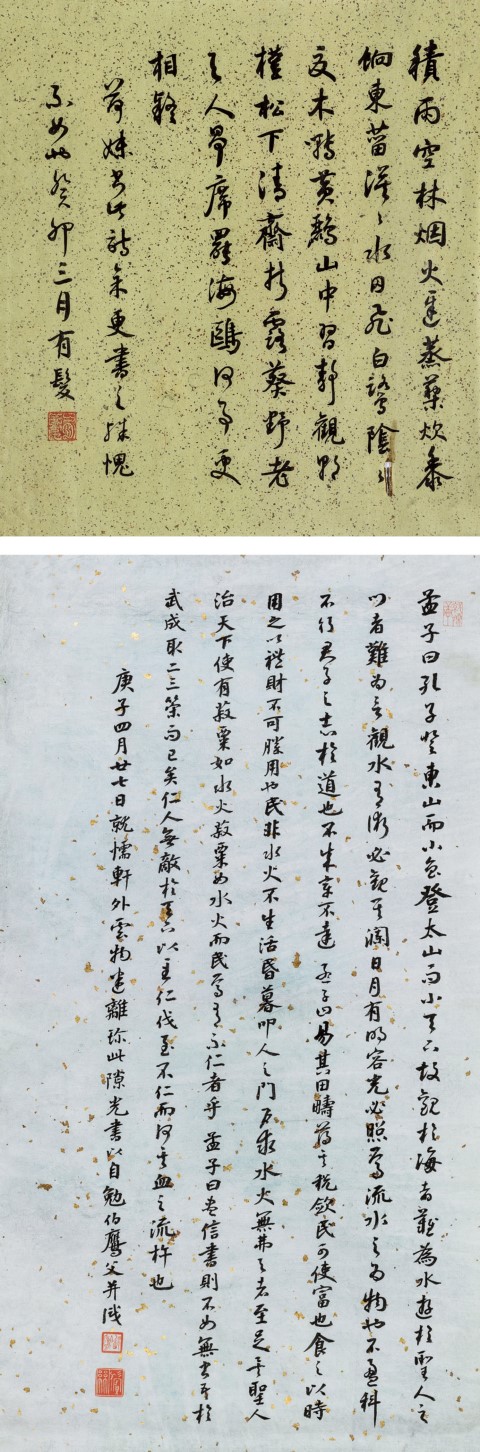 積雨空林烟火遲蒸藜炊黍
餉東菑漠〻水田飛白鷺陰〻
夏木囀黃鸝山中習靜觀朝
槿松下清齋折露葵野老
與人爭席罷海鷗何事更
相疑
荷妹書此詩象更書之殊愧
不如此癸卯三月有髮
孟子曰孔子登東山而小魯登太山而小天下故觀於海者難為水遊於聖人之
門者難為言觀水有術必觀其瀾日月有明容光必照焉流水之為物也不盈科
不行君子之志於道也不成章不達 孟子曰易其田疇薄其稅斂民可使富也食之以時
用之以禮財不可勝用也民非水火不生活昏暮叩人之門戶求水火無弗與者至足矣聖人
治天下使有菽粟如水火菽粟如水火而民焉有不仁者乎 孟子曰盡信書則不如無書吾於
武成取二三策而已矣仁人無敵於天下以至仁伐至不仁而何其血之流杵也
庚子四月廿七日就懦軒外雲物迷離珍此隙光書以自勉伯鷹父并識